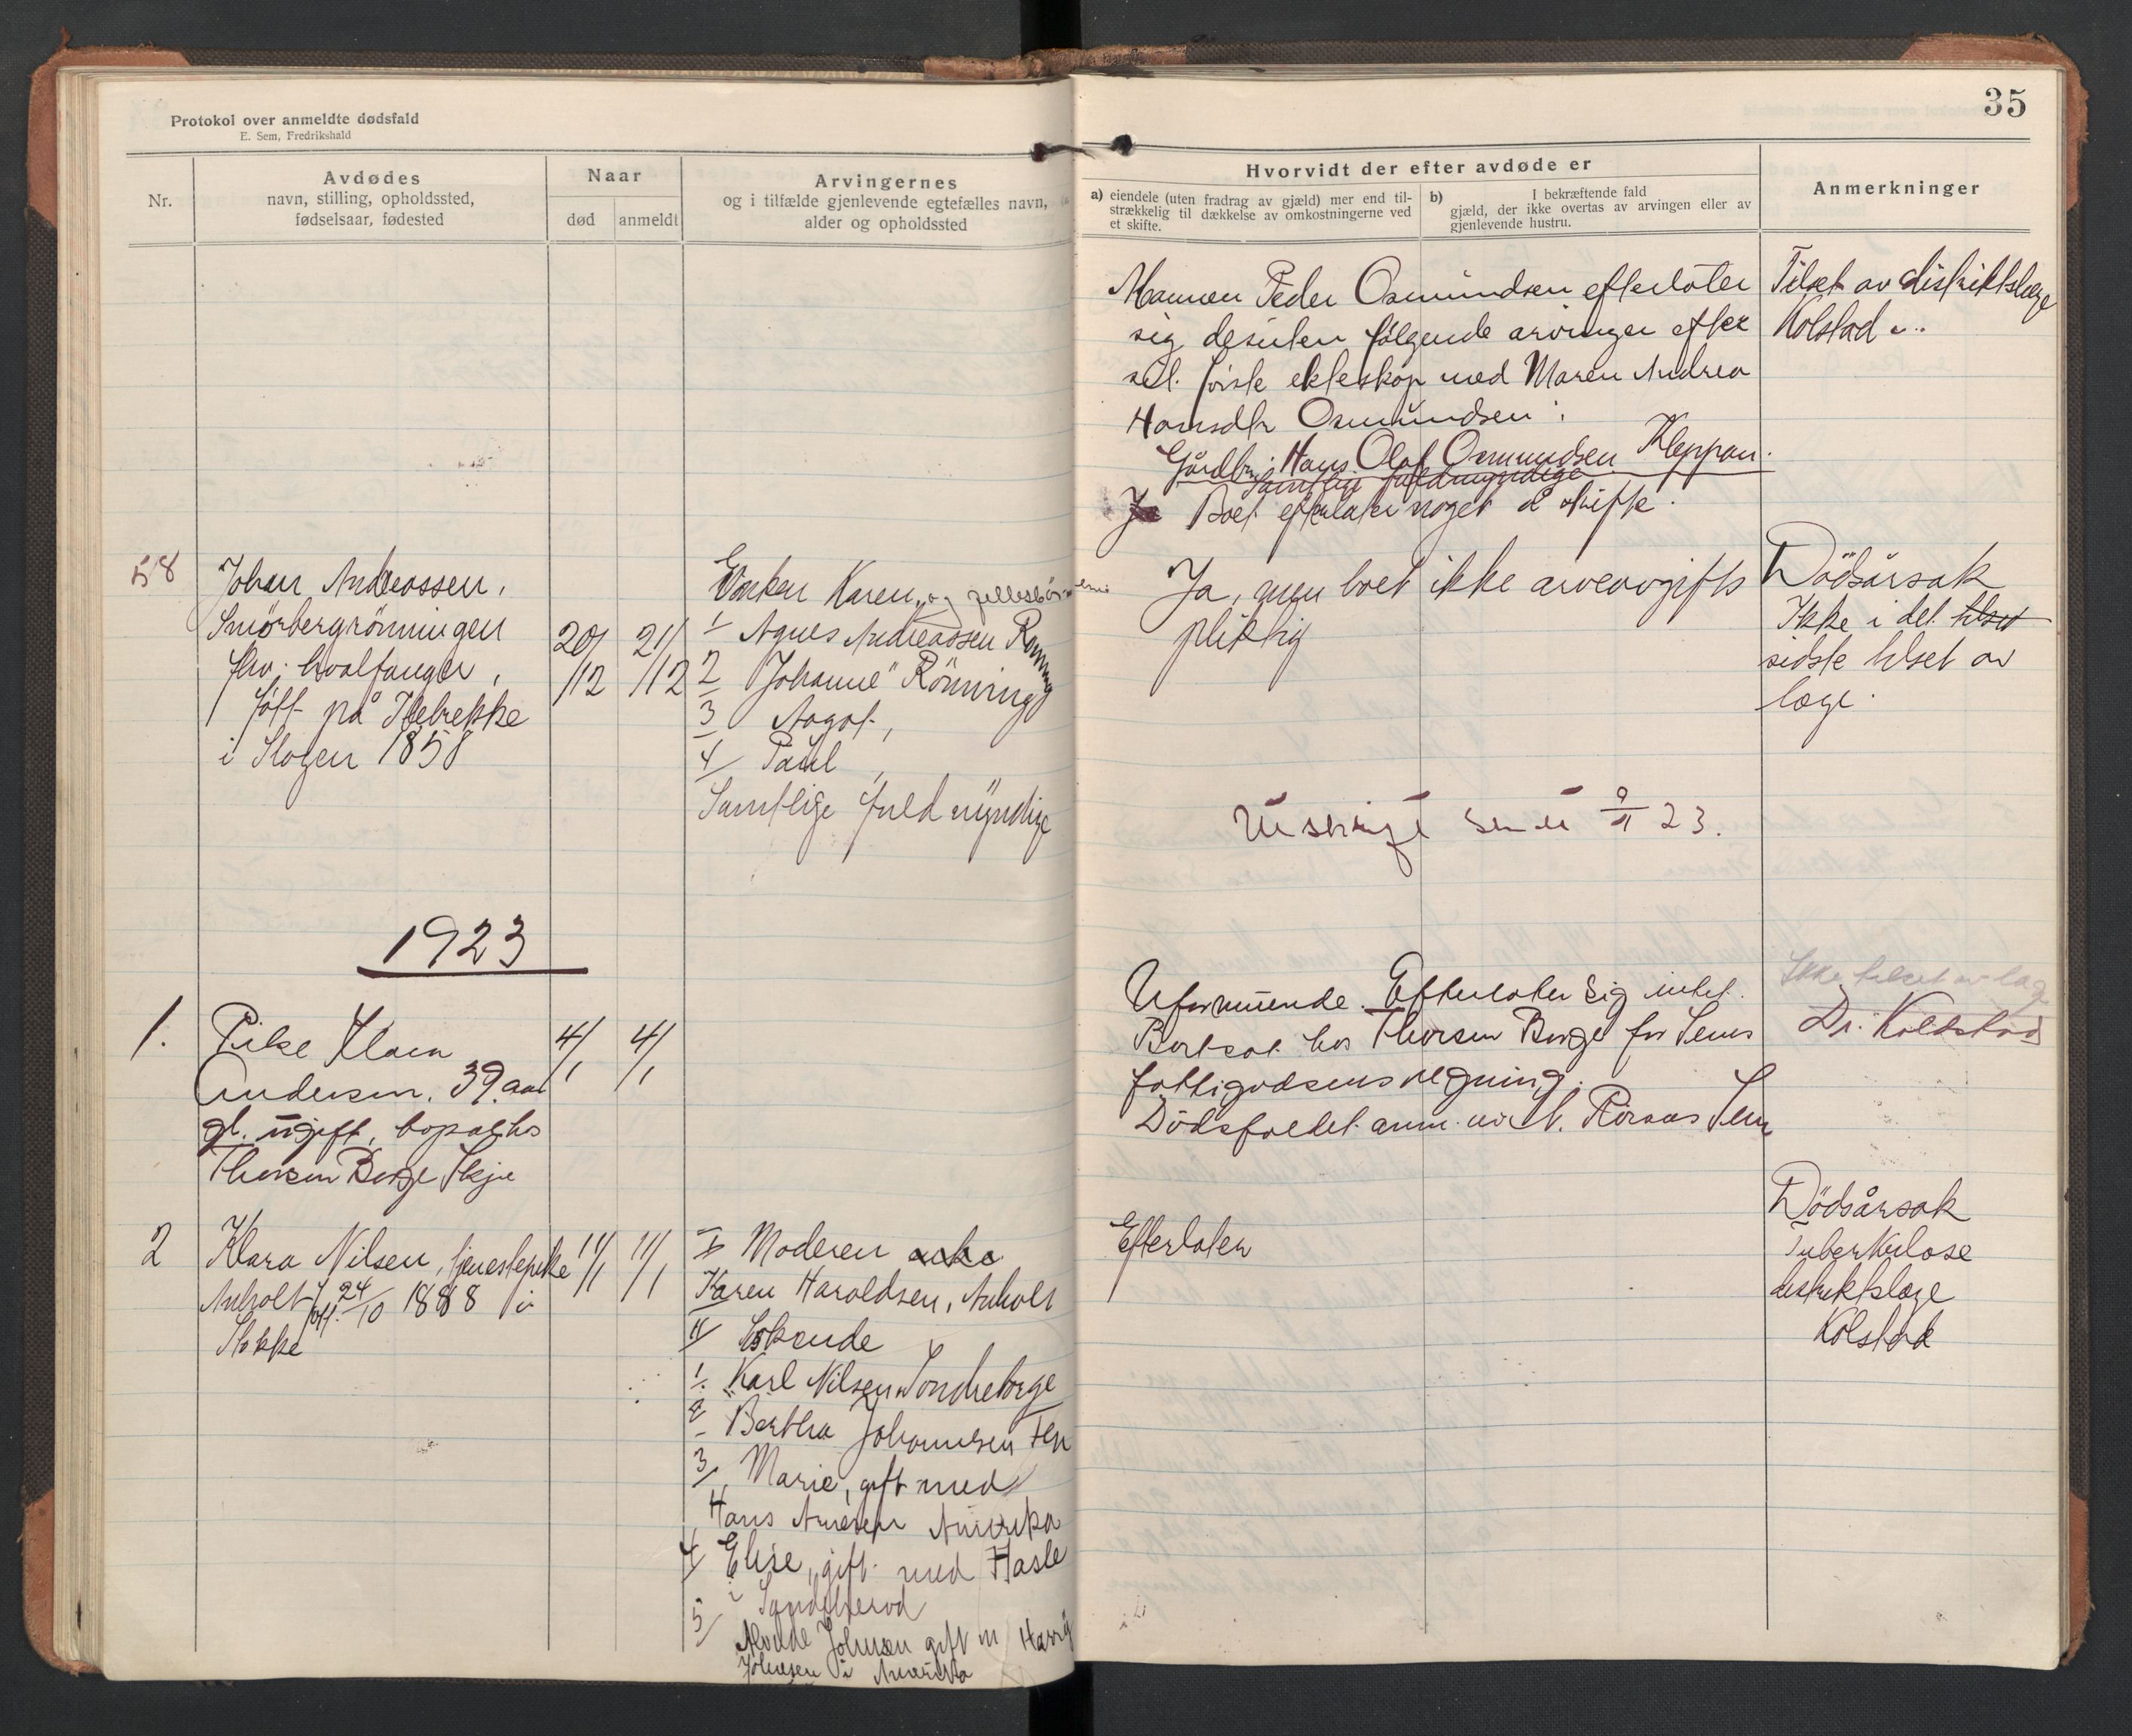 Protokol over anmeldte dødsfald
E. Sem, Fredrikshald
Nr.
Avdødes
navn, stilling, opholdssted,
fødselsaar, fødested
Naar
død
anmeldt
Arvingernes
og i tilfælde gjenlevende egtefælles navn,
alder og opholdssted
58
Johan Andreassen,
Smörbergrönningen
frv. hvalfanger,
föft på
i Slagen 1858
20/
/12
21/
/12
Enken Karen, og fellesbörnene
1 Agnes Andreassen Rönning
2 Johanne " Rönning
3 Aagot,
4/ Paul,
Samtlige fuldmyndige
1923
1.
Pike Klara
Andersen. 39 aar
gl. ugift, bopat hos
Thorsen Borge Skje
4/1
4/1
2
Klara Nilsen, tjenestepike
Anholt föft. 24/10 1888 i
Stokke
11/1
11/1
I Moderen
Karen Haroldsen, Anholt
II Söskende
1. Karl Nilsen Söndreborge
2 Bertha Johannesen
3/ Marie, gift med
Hans Amerika
4/ Elise, gift med Hasle
i
5/
Johnsen gift m/
Johnsen i Amerika
35
Hvorvidt der efter avdøde er
a) eiendele (uten fradrag av gjæld) mer end til-
strækkelig til dækkelse av omkostningerne ved
et skifte.
b) I bekræftende fald
gjæld, der ikke overtas av arvingen eller av
gjenlevende hustru.
Anmerkninger
Mannen Peder Osmundsen efterlater
sig desuten følgende arvinger efter
sit förste ekteskap med Maren Andrea
Hansdtr Osmundsen:
Gårdbr. Hans Olaf Osmundsen Kleppan.
Samtlige fuldmyndige
Ja Boet efterlater noget å skifte.
Tilset av distriktslæge
Kolstad
Ja, men boet ikke arveavgifts
pliktig
Dödsårsak
Ikke i det tilset
sidste tilset av
læge.
Utskrift sendt 9/1 23.
Uformuende. Efterlater sig intet.
Bortsat hos Thorsen Borge for Sems
fattigvæsens regning.
Dödsfaldet anm. av Sem
Ikke tilset av læge
Dr. Koldstad
Efterlater
Dödsårsak
Tuberkulose
distriktslæge
Kolstad